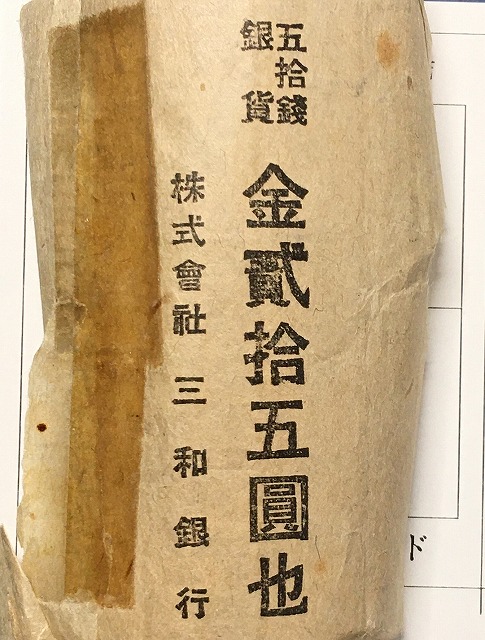 五拾錢
銀貨
金貳拾五圓也
株式會社 三和銀行
ド